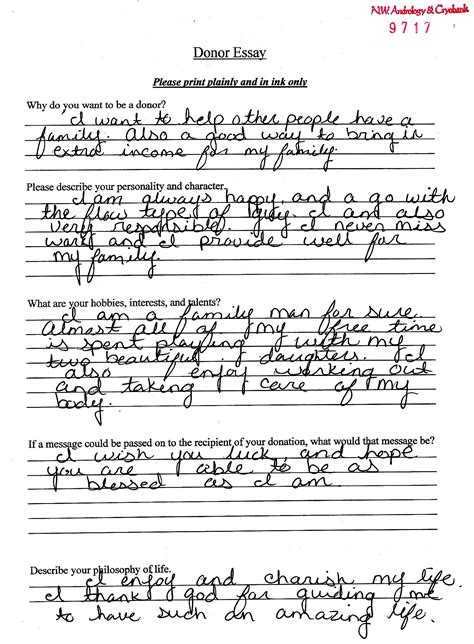 N.W. Andrology & Cryobank
9717
Donor Essay
Please print plainly and in ink only
Why do you want to be a donor?
I want to help other people have a
family. Also a good way to bring in
extra income for my family.
Please describe your personality and character.
I am always happy, and a go with
the flow type of guy. I am also
very responsible. I never miss
work and I provide well for
my family.
What are your hobbies, interests, and talents?
I am a family man for sure.
Almost all of my free time
is spent playing with my
two beautiful daughters. I
also enjoy working out
and taking care of my
body.
If a message could be passed on to the recipient of your donation, what would that message be?
I wish you luck, and hope
you are able to be as
blessed as I am.
Describe your philosophy of life.
I enjoy and charish my life.
I thank god for guiding me
to have such an amazing life.